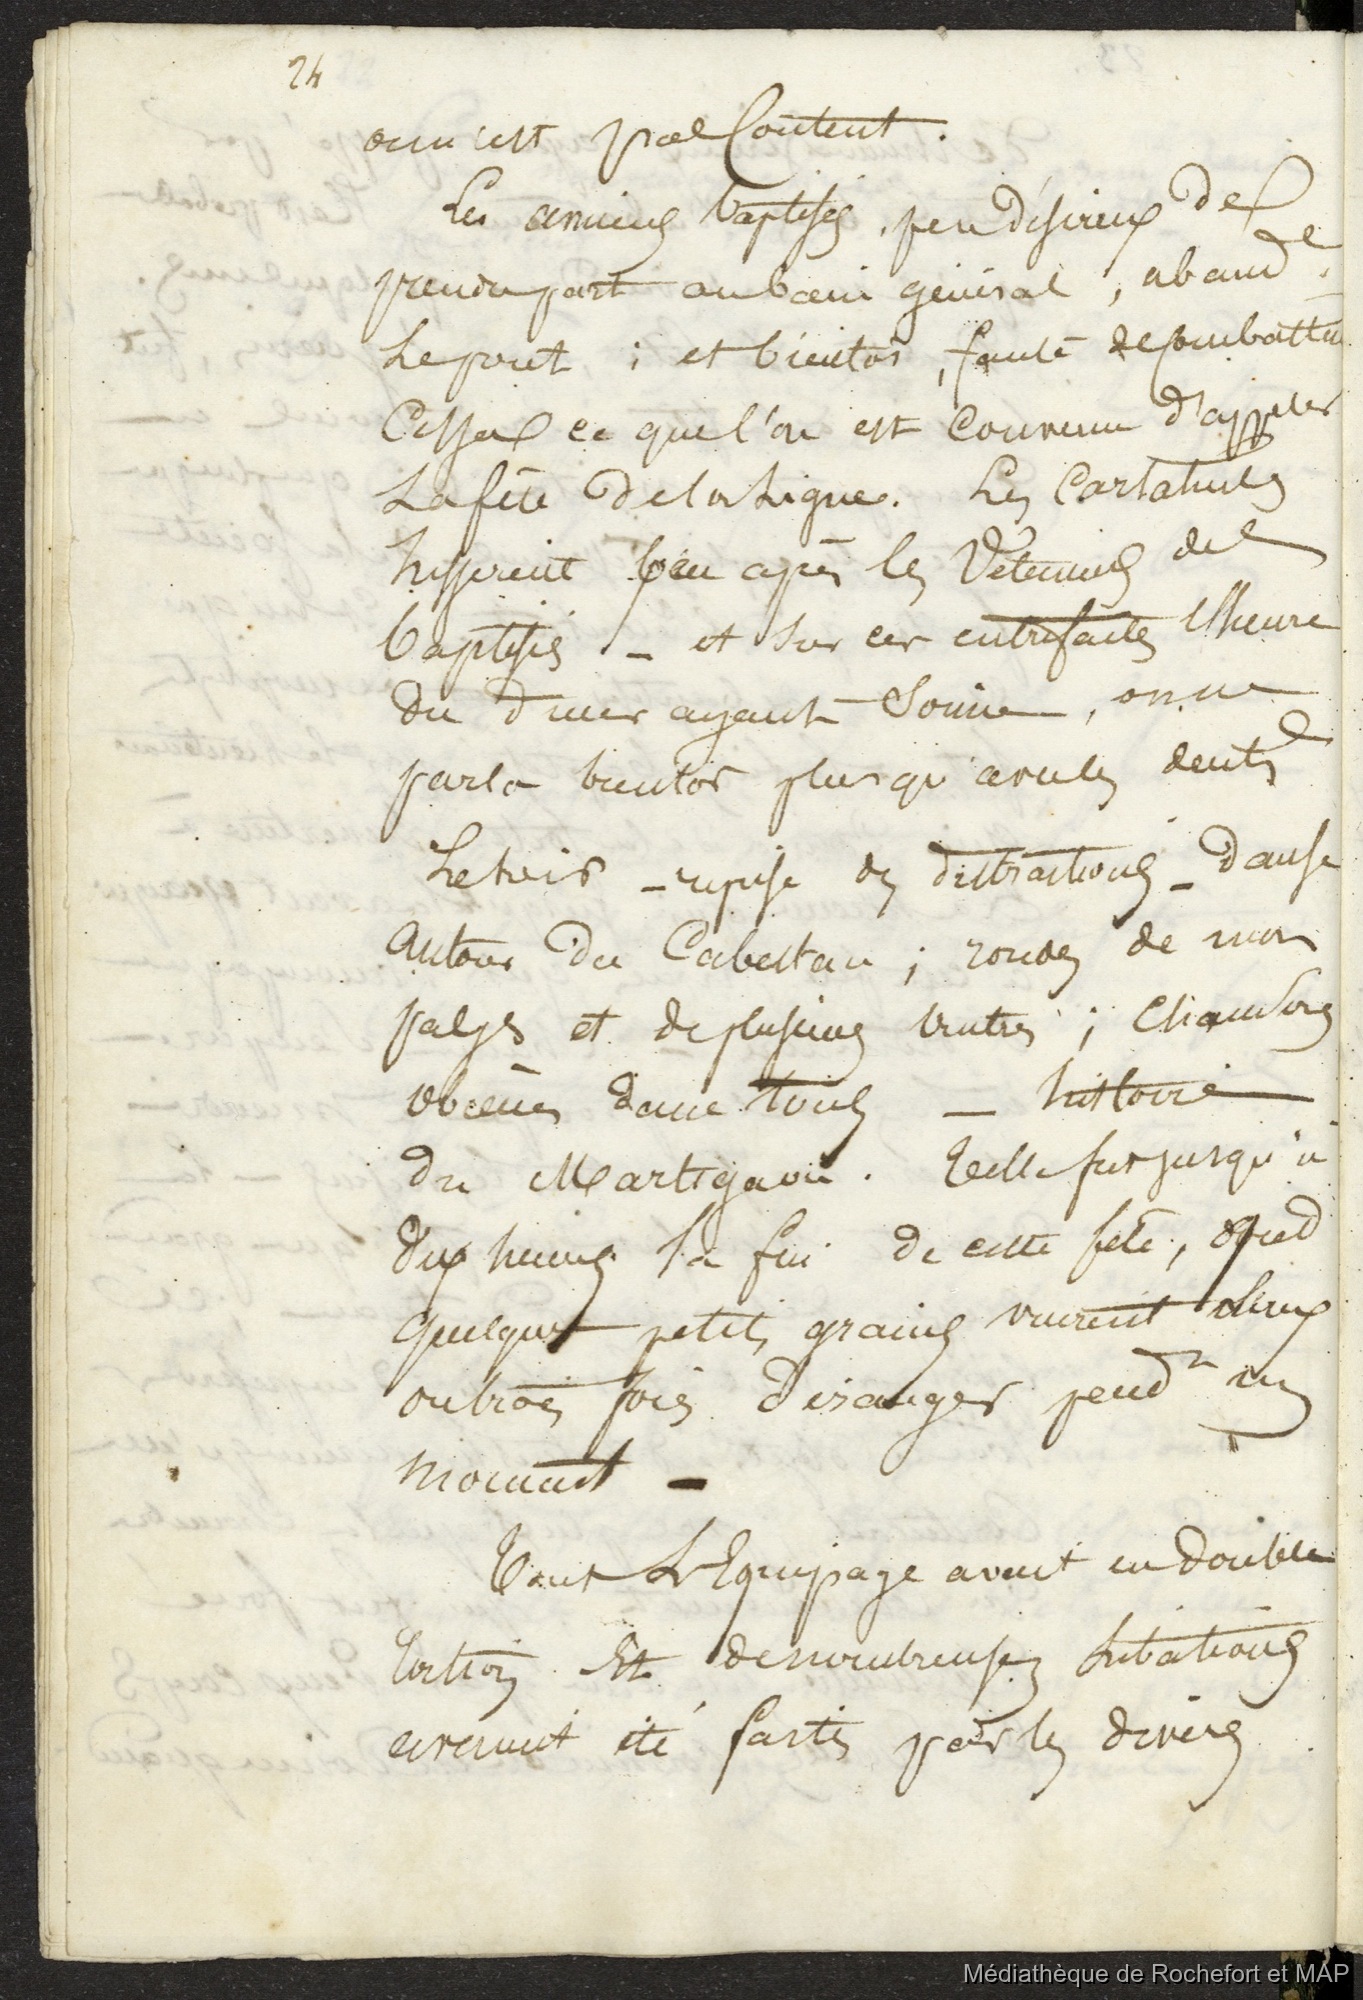 24
on n'est pas content.
Les anciens baptisés, peu désireux de
prendre part au bain général, aband.e
le pont ; et bientôt, faute de combattre
cessa ce que l'on est convenu d'appeler
la fête de la Ligne. Les
hissèrent peu après les vêtemens des
baptisés _ et sur ces entrefaites l'heure
du diner ayant sonné, on ne
parla bientôt plus qu'avec les dents
Le soir _ reprise des distractions _ danse
autour du Cabestan ; rondes de mon
pays et de plusieurs autres ; chansons
obcènes dans tous _ histoire
du Martigaou. Telle fut jusqu'à
dix heures la fin de cette fête, que
quelques petits grains vinrent deux
ou trois fois déranger pendt un
moment _
Tout L'Equipage avait eu double
ration Et de nombreuses libations
avaient été faites par les divers
Médiathèque de Rochefort et MAP